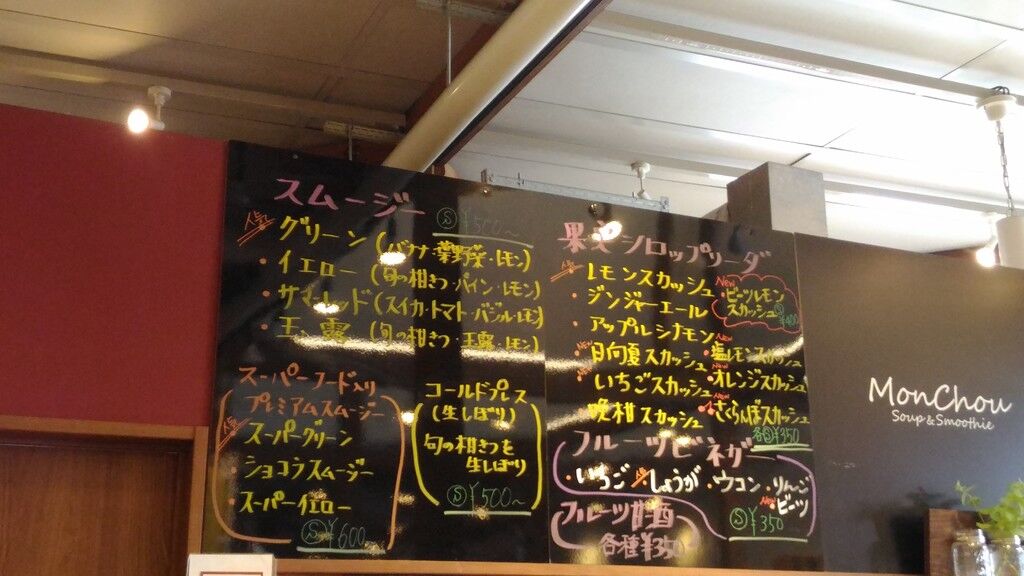 スムージー Ⓢ¥500~
人気 グリーン(バナナ・葉野菜・レモン)
・イエロー(旬の柑きつ・パイン・レモン)
・サマーレッド(スイカ・トマト・バジル・レモン)
・玉露(旬の柑きつ・玉露・レモン)
スーパーフード入り
プレミアムスムージー
人気 スーパーグリーン
・ショコラスムージー
・スーパーイエロー
Ⓢ¥600~
コールドプレス
(生しぼり)
旬の柑きつを
生しぼり
Ⓢ¥500~
果実シロップソーダ
・レモンスカッシュ
・ジンジャーエール
・アップルシナモン
New 日向夏スカッシュ
New いちごスカッシュ
・晩柑スカッシュ
New
・ビーツレモン
スカッシュ Ⓢ¥400
New
・塩レモンスカッシュ
New
・オレンジスカッシュ
New
・さくらんぼスカッシュ
各Ⓢ¥350
フルーツビネガー
・いちご・しょうが・ウコン・りんご
New
・ビーツ
Ⓢ¥350
フルーツ甘酒
各種¥350
MonChou
Soup & Smoothie